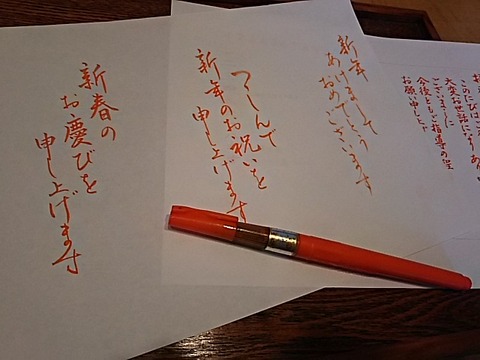 このたびは
大変お世話になり
ございました
今後ともご指導の程
お願い申し上げ
新年
あけまして
おめでとうございます
つつしんで
新年のお祝いを
申し上げます
新春の
お慶びを
申し上げます